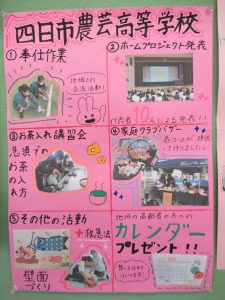 四日市農芸高等学校
①奉仕作業
地域との
交流活動!
②ホームプロジェクト発表
代表者10人による発表!!
③お茶入れ講習会
急須での
お茶
の入
れ方
④家庭クラブバザー
各コースが頑張
って作りました。
⑤その他の活動
+救急法
壁面
づくり
地域の高齢者の方への
カレンダー
プレゼント!!